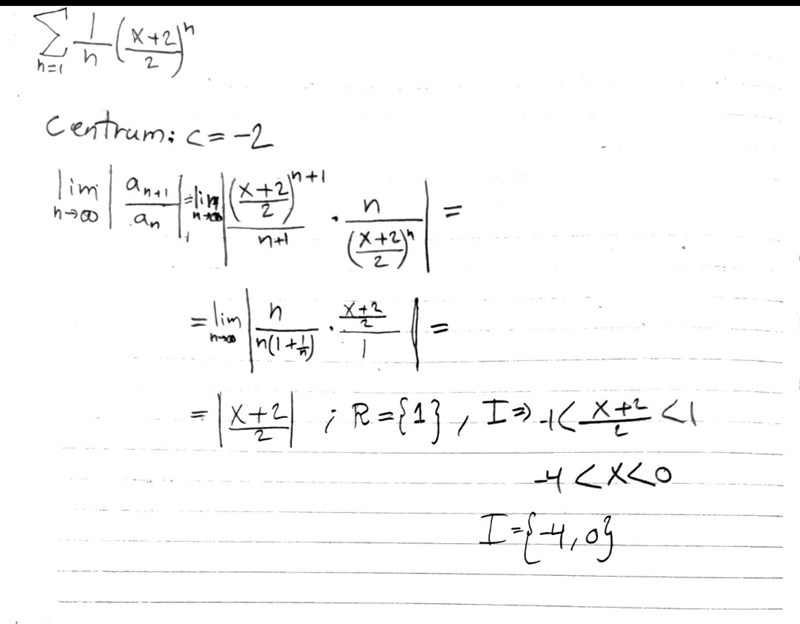 ∑_{n=1} 1/n ((x+2)/2)^n
Centrum: c = -2
lim_{n→∞} |a_{n+1}/a_n| = lim_{n→∞} |((x+2)/2)^{n+1}/(n+1) · n/((x+2)/2)^n| =
= lim_{n→∞} |n/(n(1+1/n)) · ((x+2)/2)/1| =
= |(x+2)/2| ; R = {1}, I ⇒ -1 < (x+2)/2 < 1
-4 < x < 0
I = {-4, 0}